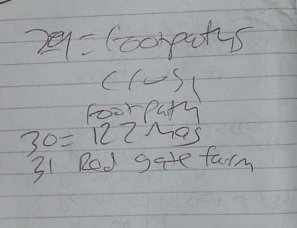 29 = footpaths
cross
footpath
30 = 122 Mag
31 Rod gate farm